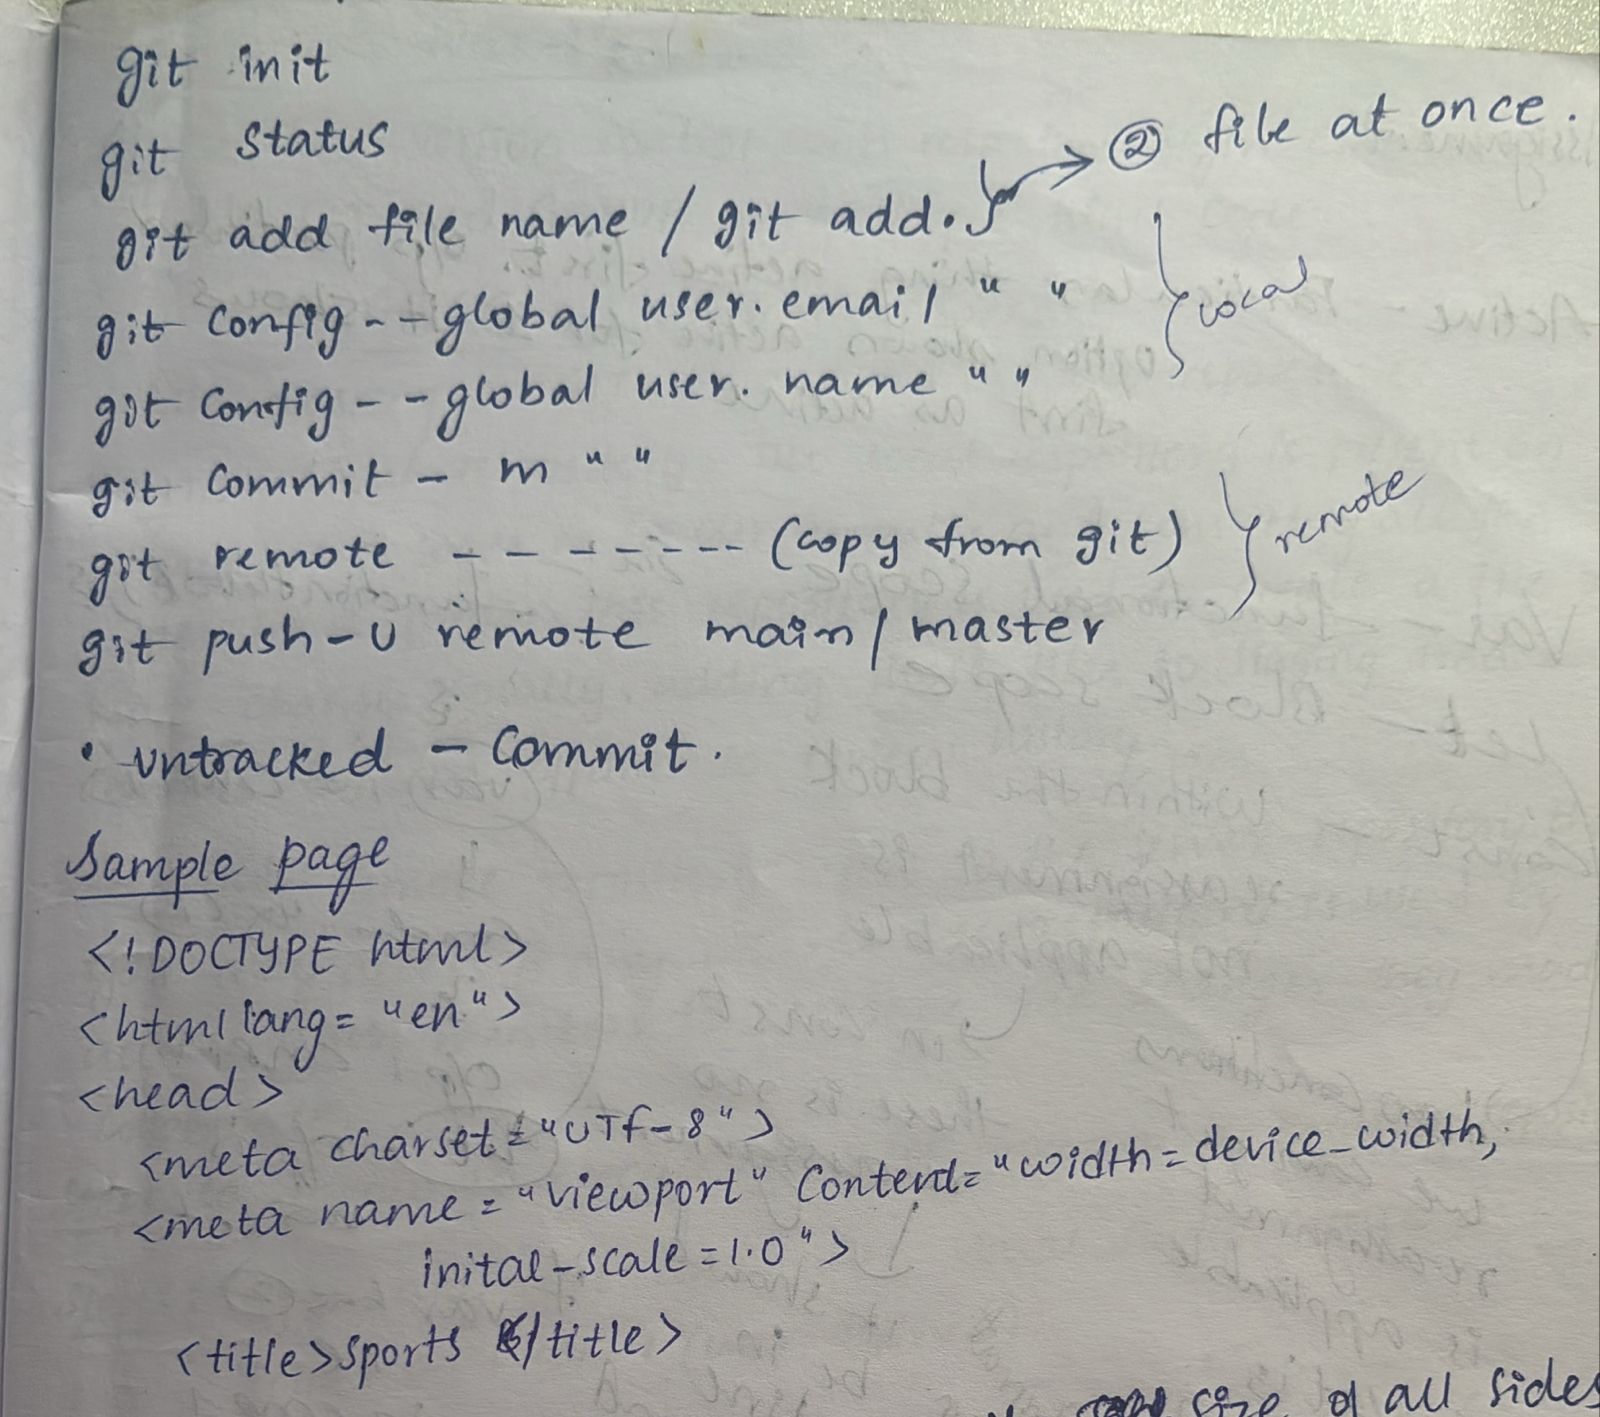 git init
git status
git add file name / git add. → ② file at once.
git config -- global user.email " "
git config -- global user.name " "
local
git commit - m " "
git remote - - - - - - - (copy from git)
git push -u remote main / master
remote
• untracked - commit.
Sample page
<!DOCTYPE html>
<html lang= "en">
<head>
<meta charset="UTf-8">
<meta name="viewport" content="width=device_width,
inital-scale=1.0">
<title>sports </title>
size of all sides